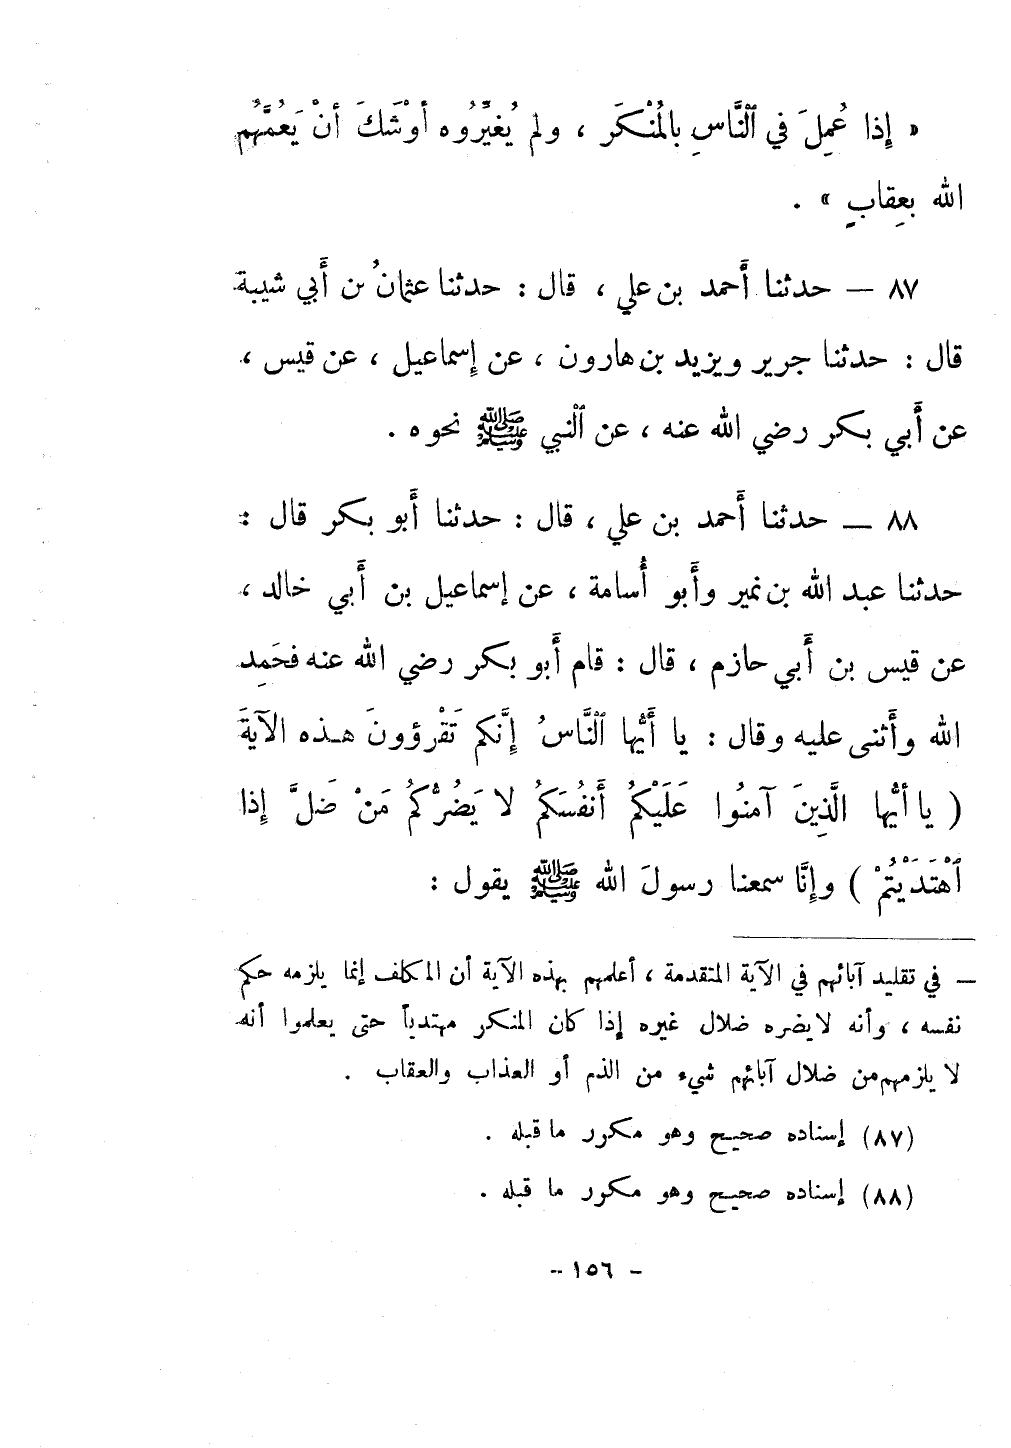 « إِذا عُمِلَ في ٱلنَّاسِ بالمُنْكَرِ ، ولم يُغيِّرُوه أوْشَكَ أنْ يَعُمَّهُم
الله بعِقابٍ » .
٨٧ — حدثنا أَحمد بن علي ، قال : حدثنا عثمانُ بن أَبي شيبة
قال : حدثنا جرير ويزيد بن هارون ، عن إِسماعيل ، عن قيس ،
عن أَبي بكر رضي الله عنه ، عن ٱلنبي ﷺ نحوه .
٨٨ — حدثنا أَحمد بن علي ، قال : حدثنا أَبو بكر قال :
حدثنا عبد الله بن نمير وأَبو أُسامة ، عن إسماعيل بن أَبي خالد ،
عن قيس بن أَبي حازم ، قال : قام أَبو بكر رضي الله عنه فحَمِد
الله وأَثنى عليه وقال : يا أَيُّها ٱلنَّاسُ إِنَّكم تَقْرؤونَ هـذه الآيةَ
( يا أيُّها الَّذِينَ آمنُوا عَلَيْكُمْ أَنفُسَكُمْ لا يَضُرُّكُمْ مَنْ ضَلَّ إِذا
ٱهْتَدَيْتُمْ ) وإِنَّا سمعنا رسولَ الله ﷺ يقول :
— في تقليد آبائهم في الآية المتقدمة ، أعلمهم بهذه الآية أن المكلف إنما يلزمه حكم
نفسه ، وأنه لا يضره ضلال غيره إذا كان المنكر مهتدياً حتى يعلموا أنه
لا يلزمهم من ضلال آبائهم شيء من الذم أو العذاب والعقاب .
(٨٧) إسناده صحيح وهو مكرر ما قبله .
(٨٨) إسناده صحيح وهو مكرر ما قبله .
- ١٥٦ --